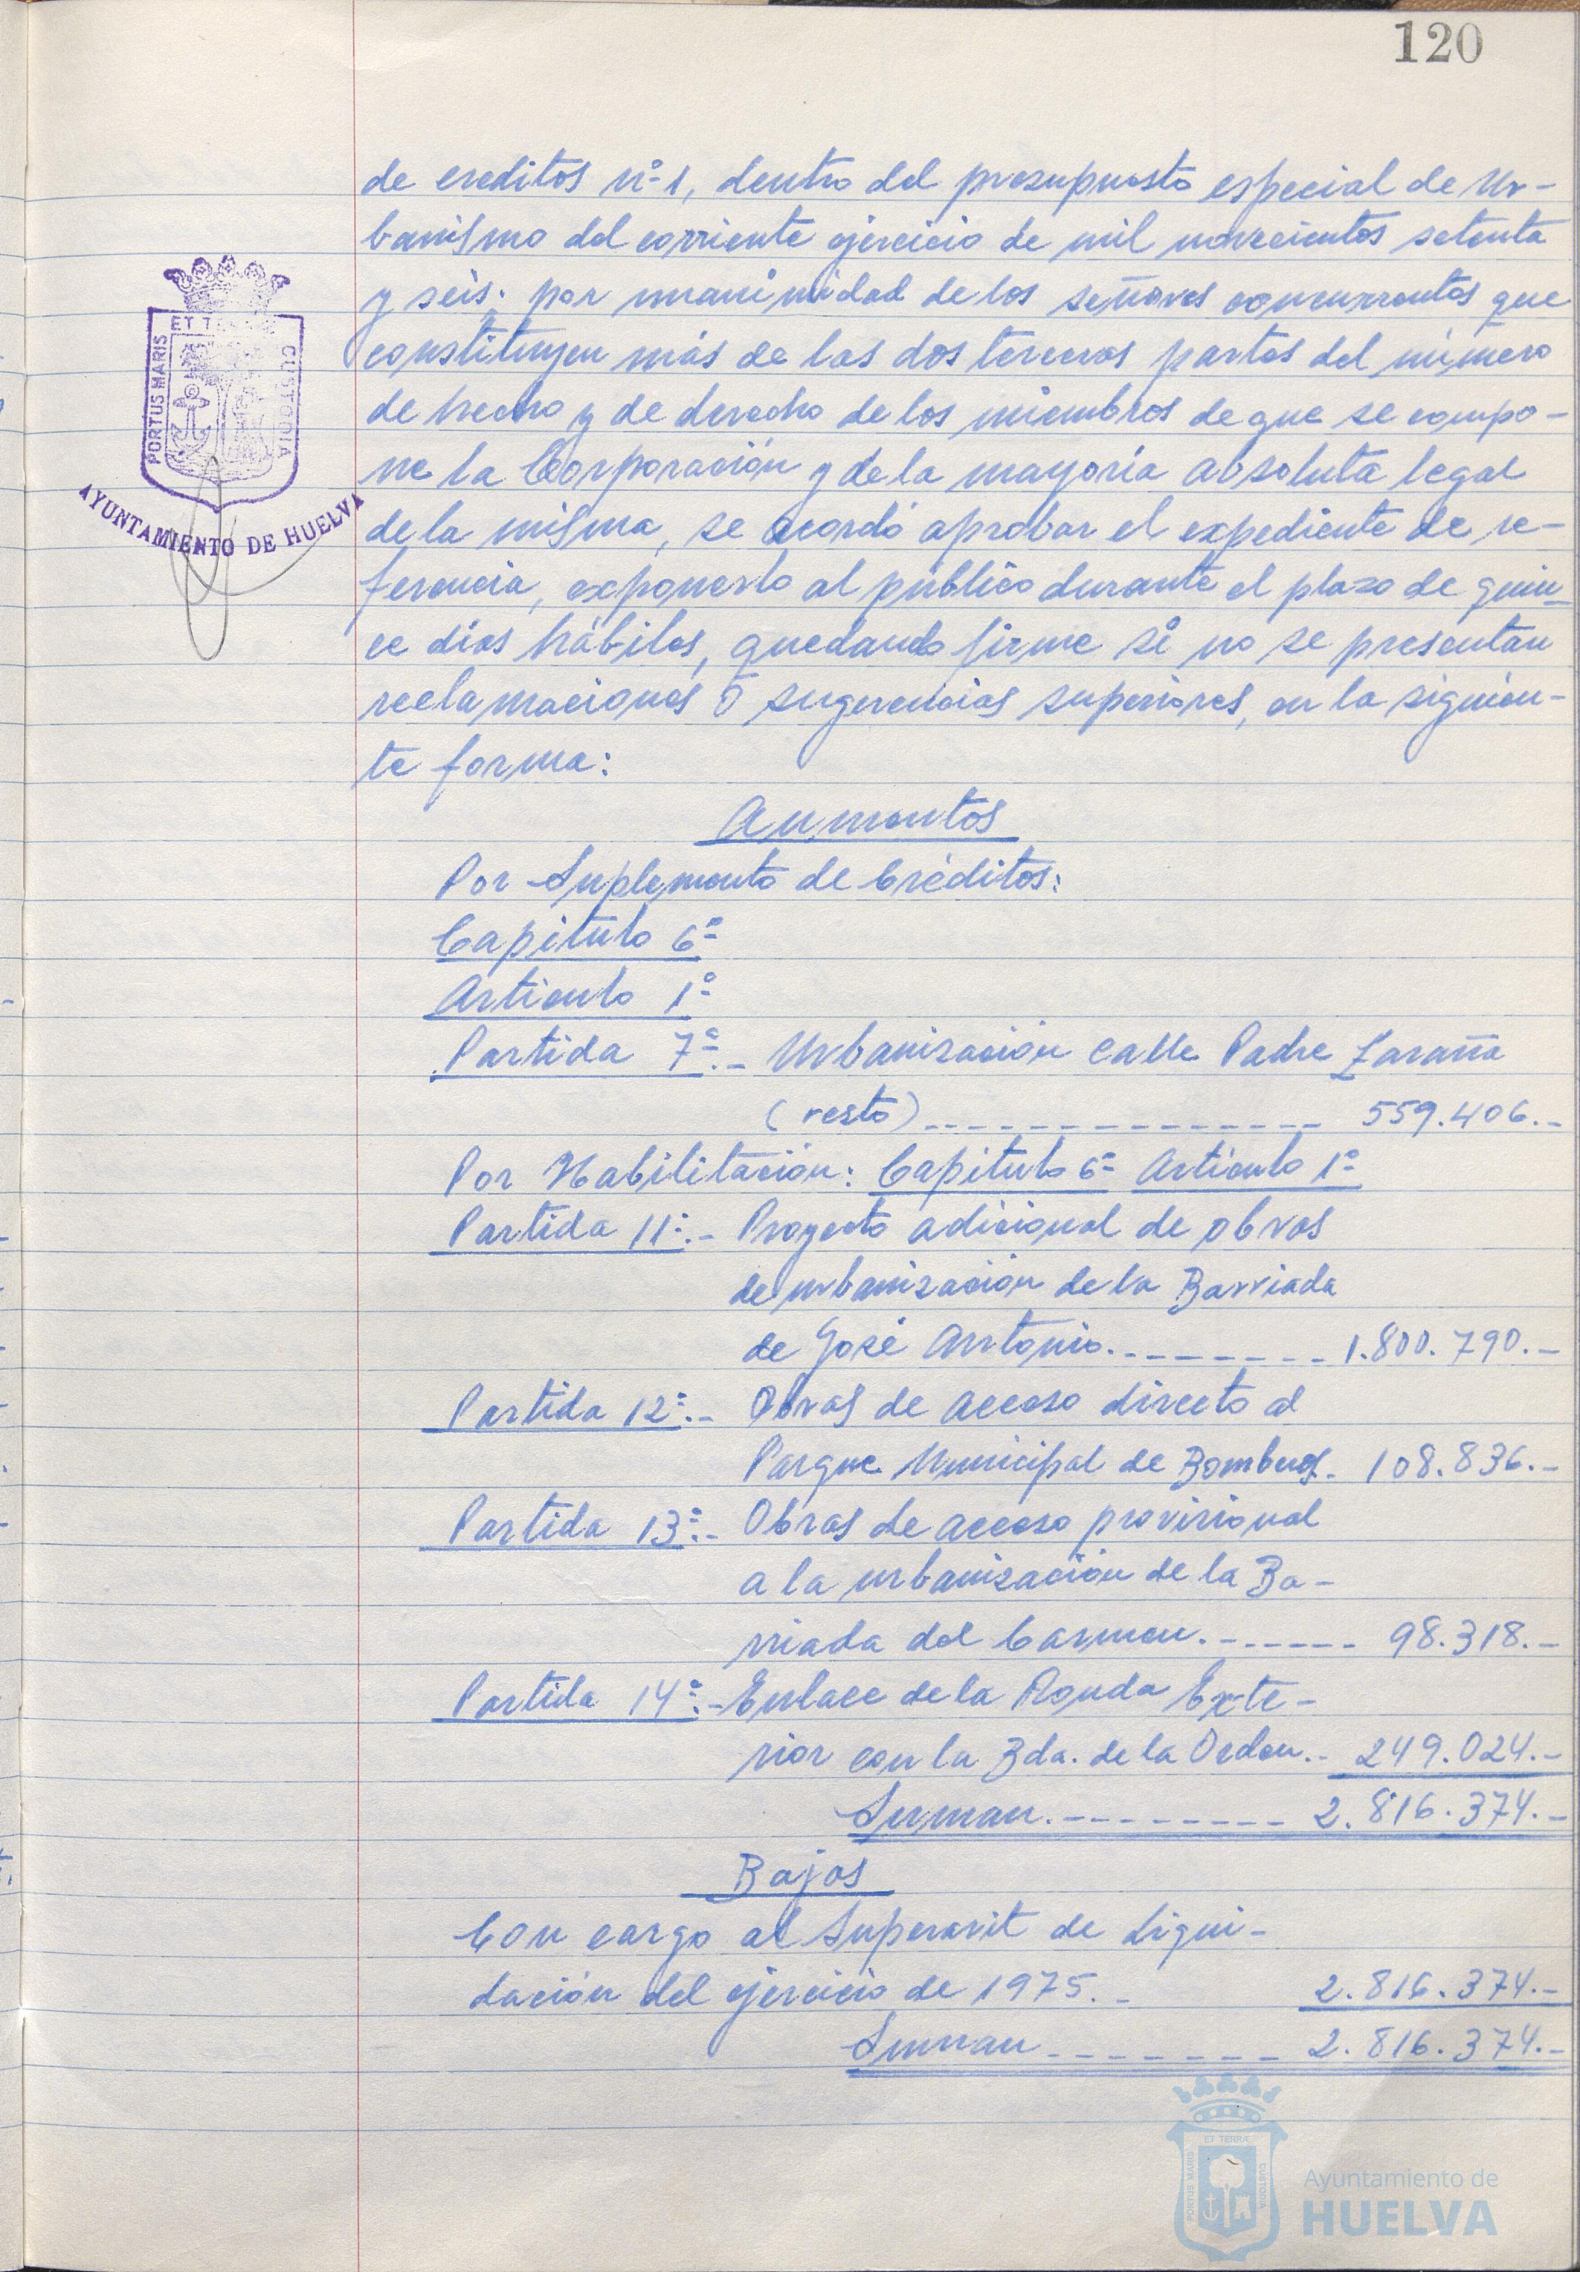 120
de creditos nº 1, dentro del presupuesto especial de Ur-
banismo del corriente ejercicio de mil novecientos setenta
y seis; por unanimidad de los señores concurrentes que
constituyen más de las dos terceras partes del número
de hecho y de derecho de los miembros de que se compo-
ne la Corporación y de la mayoría absoluta legal
de la misma, se acordó aprobar el expediente de re-
ferencia, exponerlo al público durante el plazo de quin-
ce días hábiles, quedando firme si no se presentan
reclamaciones o sugerencias superiores, en la siguien-
te forma:
Aumentos
Por Suplemento de Créditos:
Capitulo 6º
Articulo 1º
Partida 7ª.- Urbanización calle Padre Laraña
(resto)--------------- 559.406.-
Por Habilitación: Capitulo 6º Articulo 1º
Partida 11ª.- Proyecto adicional de obras
de urbanización de la Barriada
de José Antonio.-------- 1.800.790.-
Partida 12ª.- Obras de acceso directo al
Parque Municipal de Bomberos.- 108.836.-
Partida 13ª.- Obras de acceso provisional
a la urbanización de la Ba-
rriada del Carmen.------ 98.318.-
Partida 14ª.- Enlace de la Ronda Exte-
rior con la Bda. de la Orden.- 249.024.-
Suman.--------- 2.816.374.-
Bajas
Con cargo al Superavit de Liqui-
dación del ejercicio de 1975.- 2.816.374.-
Suman-------- 2.816.374.-
PORTUS MARIS
ET T
CUSTODIA
AYUNTAMIENTO DE HUELVA
PORTUS MARIS
ET TERRÆ
CUSTODIA
Ayuntamiento de
HUELVA